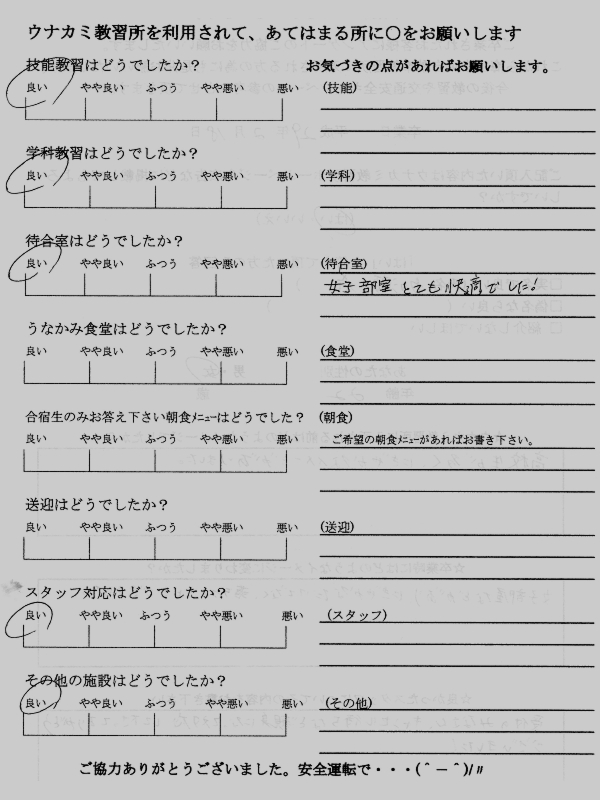 ウナカミ教習所を利用されて、あてはまる所に〇をお願いします
技能教習はどうでしたか？
お気づきの点があればお願いします。
良い やや良い ふつう やや悪い 悪い
(技能)
学科教習はどうでしたか？
良い やや良い ふつう やや悪い 悪い
(学科)
待合室はどうでしたか？
良い やや良い ふつう やや悪い 悪い
(待合室)
女子部室とても快適でした!
うなかみ食堂はどうでしたか？
良い やや良い ふつう やや悪い 悪い
(食堂)
合宿生のみお答え下さい朝食ﾒﾆｭｰはどうでした？
(朝食)
良い やや良い ふつう やや悪い 悪い
ご希望の朝食ﾒﾆｭｰがあればお書き下さい。
送迎はどうでしたか？
良い やや良い ふつう やや悪い 悪い
(送迎)
スタッフ対応はどうでしたか？
良い やや良い ふつう やや悪い 悪い
(スタッフ)
その他の施設はどうでしたか？
良い やや良い ふつう やや悪い 悪い
(その他)
ご協力ありがとうございました。安全運転で・・・(＾－＾)/〃